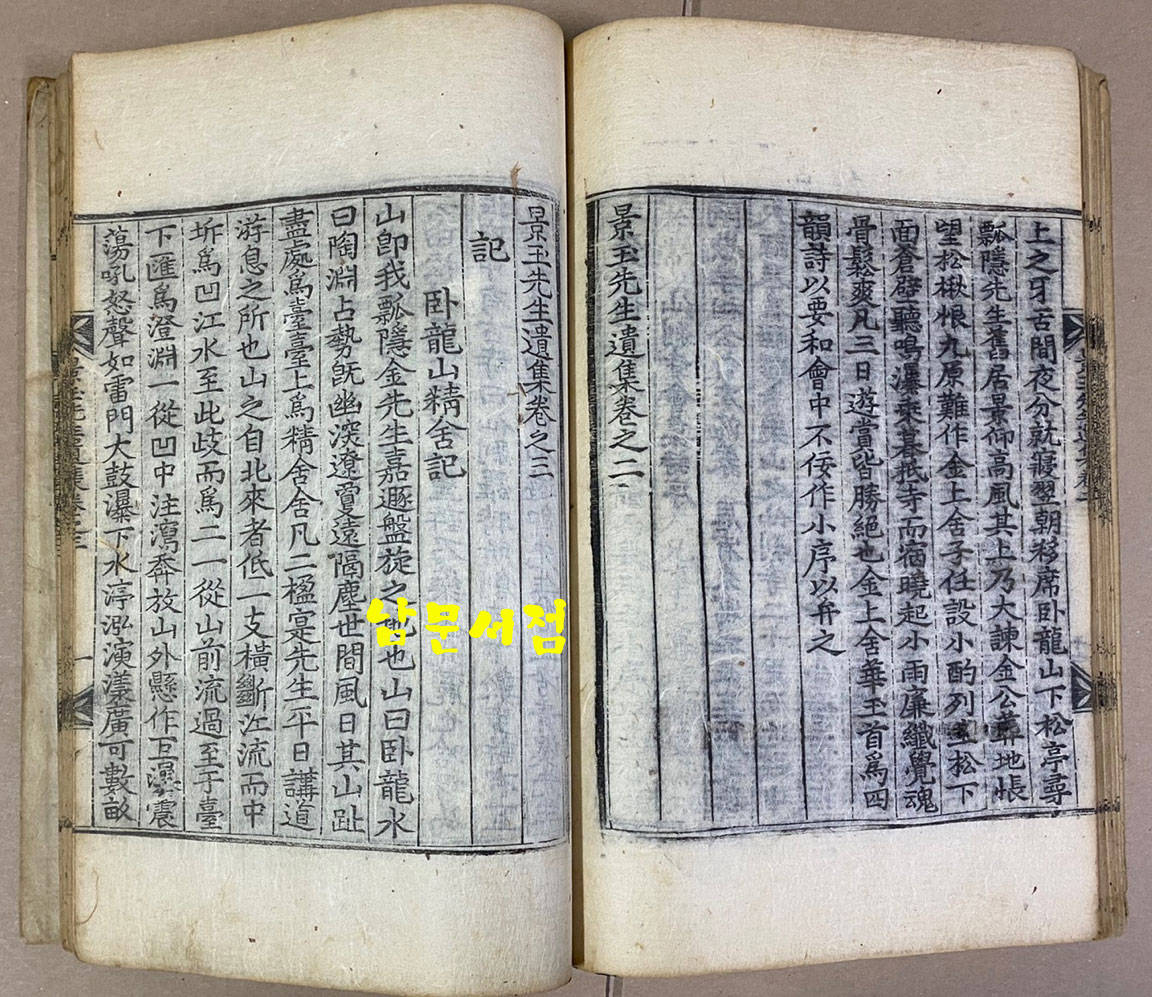 上之牙舌間夜分就寢翌朝移席卧龍山下松亭尋
瓢隱先生舊居景仰高風其上乃大諫金公葬地悵
望松楸根九原難作金上舍子任設小酌列坐松下
面倉壁聽鳴瀑乘暮抵寺而宿曉起小雨廉纖覺魂
骨鬆爽凡三日遊賞皆勝絶也金上舍華玉首爲四
韻詩以要和會中不佞作小序以弁之
景玉先生遺集卷之二
景玉先生遺集卷之三
記
卧龍山精舍記
山卽我瓢隱金先生嘉遯盤旋之地也山曰卧龍水
曰陶淵占勢旣幽深遼敻遠隔塵世間風日其山趾
盡處爲臺臺上爲精舍舍凡二楹寔先生平日講道
游息之所也山之自北來者低一支橫斷江流而中
坼爲凹江水至此歧而爲二一從山前流過至于臺
下匯爲澄淵一從凹中注瀉奔放山外懸作巨瀑震
蕩吼怒聲如雷門大鼓瀑下水渟泓演漾廣可數畝
景玉先生遺集卷之三
一
남문서점